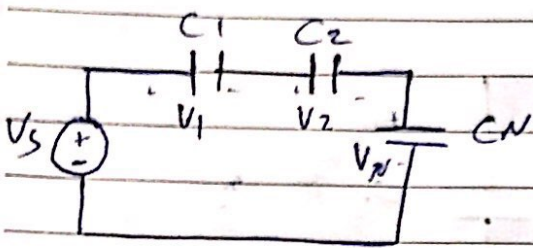 C1 C2
V1 V2
VS + -
+ CN
VN -